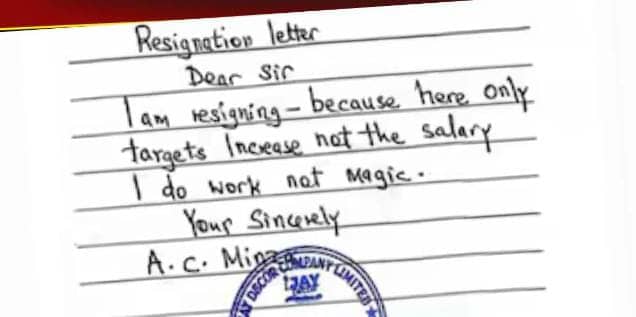 Resignation letter
Dear Sir
I am resigning - because here only
targets Increase not the salary
I do work not Magic.
Your Sincerely
A.C.
DECOR COMPANY LIMITED
JAY